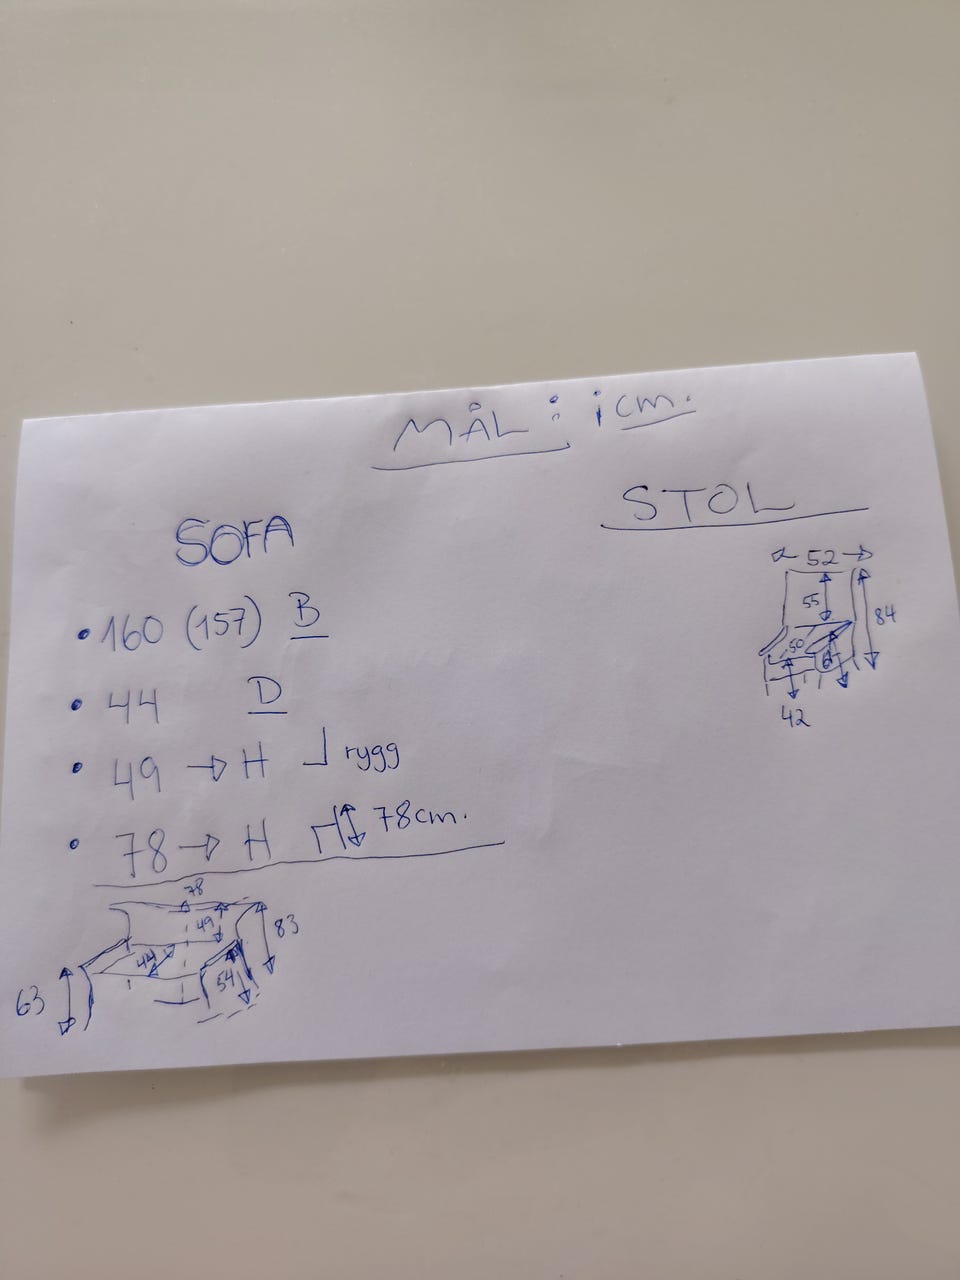 MÅL : i cm.
SOFA
• 160 (157) B
• 44 D
• 49 → H rygg
• 78 → H 78cm.
78
49
83
44
54
63
STOL
52
55
84
50
42